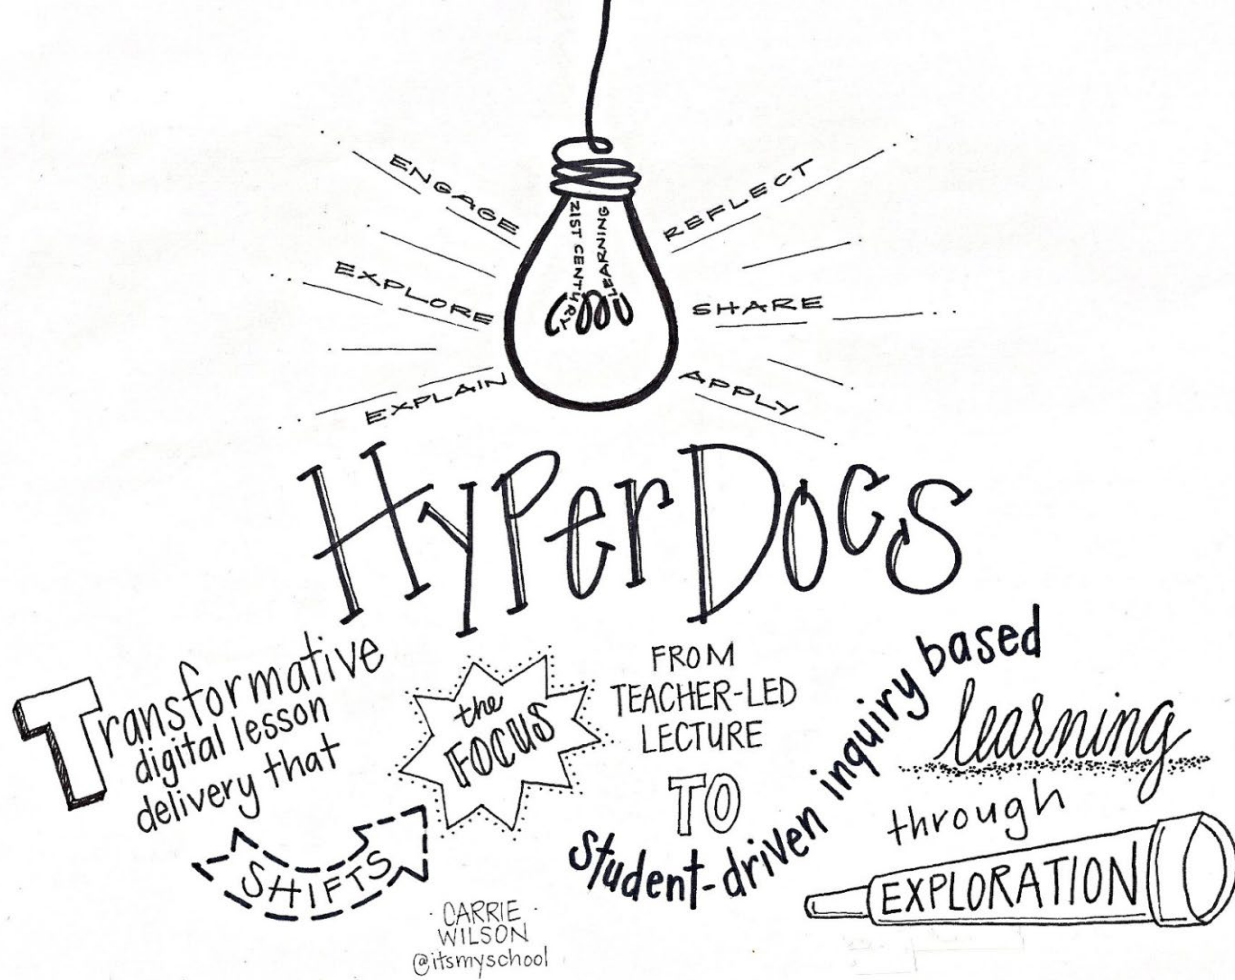 ENGAGE
EXPLORE
EXPLAIN
21ST CENTURY
LEARNING
REFLECT
SHARE
APPLY
HyperDocs
Transformative
digital lesson
delivery that
SHIFTS
the
FOCUS
FROM
TEACHER-LED
LECTURE
TO
student-driven inquiry based
learning
through
EXPLORATION
CARRIE
WILSON
@itsmyschool